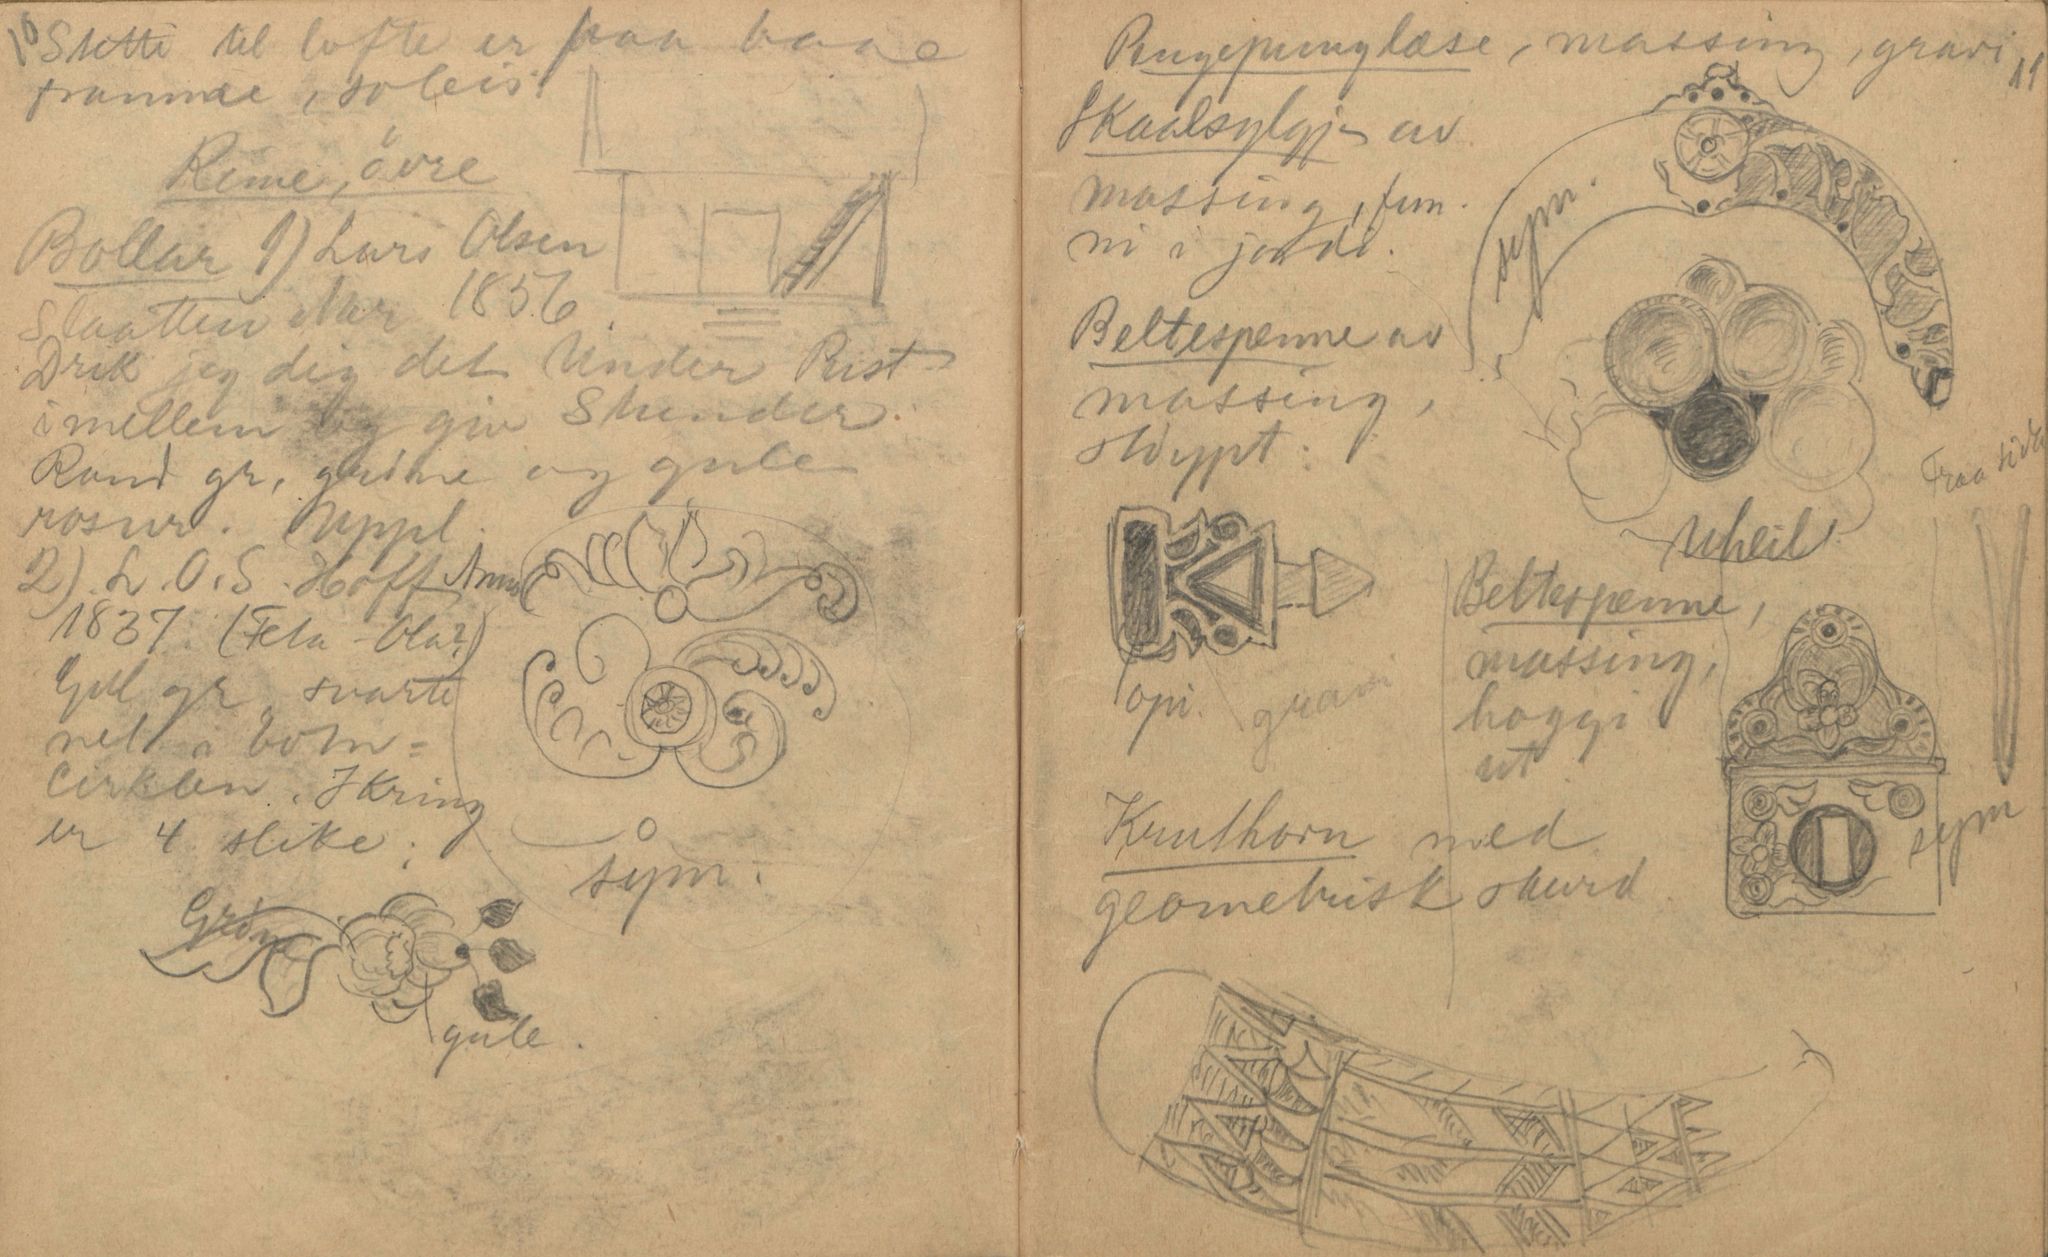 10
Stette til lofte er paa baae
frammae, soleis:
Rime, övre
Bollar 1) Lars Olsen
Slaatten Aar 1856
Drik jeg dig det Under Rist
imellem og giv Stunder.
Rand gr, gröne og gule
rosur. Uppl.
2) L. O. S. Hoff Anno
1837. (Feta-Ola?)
Gul gr, svarte
nel i botn-
cirklen. Ikring
er 4 slike:
sym.
Gröne
gule.
11
Pungepunglæse, massing, gravi
Skaalsylgje av
massing, fun-
ni i jordi.
sym.
Beltespenne av
massing,
stöypt:
uheil
Fraa sida
opi.
grav
Beltespenne,
massing,
hoggi
ut
sym
Kruthorn med
geometrisk skurd